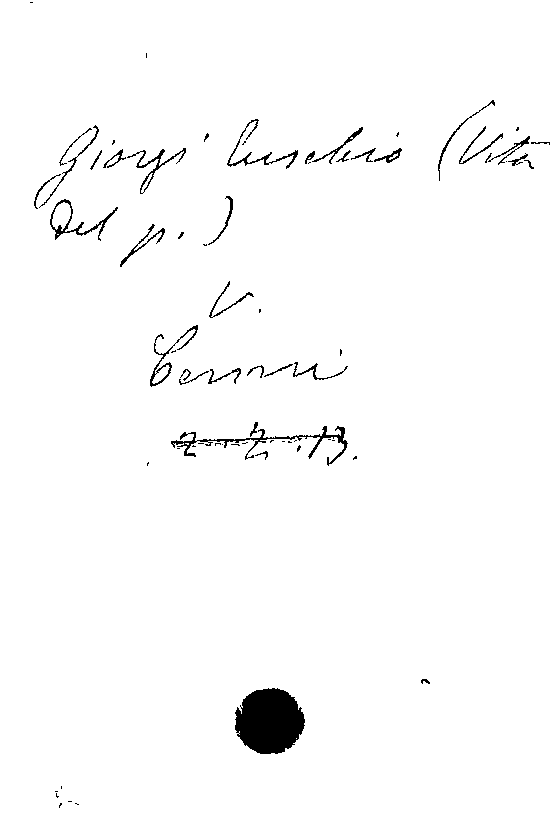 Giorgi Eusebio (Vita
del p.)
V.
Cermi
2. 2. 13.